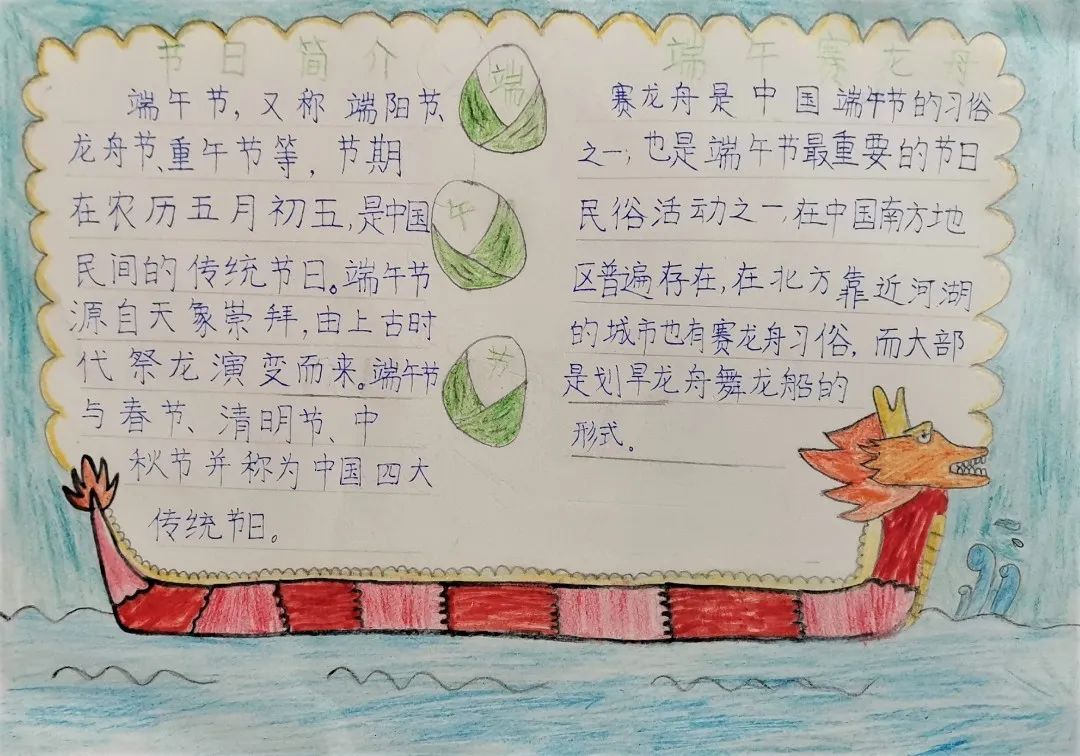 节日简介
端午节，又称端阳节、
龙舟节、重午节等，节期
在农历五月初五，是中国
民间的传统节日。端午节
源自天象崇拜，由上古时
代祭龙演变而来。端午节
与春节、清明节、中
秋节并称为中国四大
传统节日。
端
午
节
端午赛龙舟
赛龙舟是中国端午节的习俗
之一，也是端午节最重要的节日
民俗活动之一，在中国南方地
区普遍存在，在北方靠近河湖
的城市也有赛龙舟习俗，而大部
是划旱龙舟舞龙船的
形式。